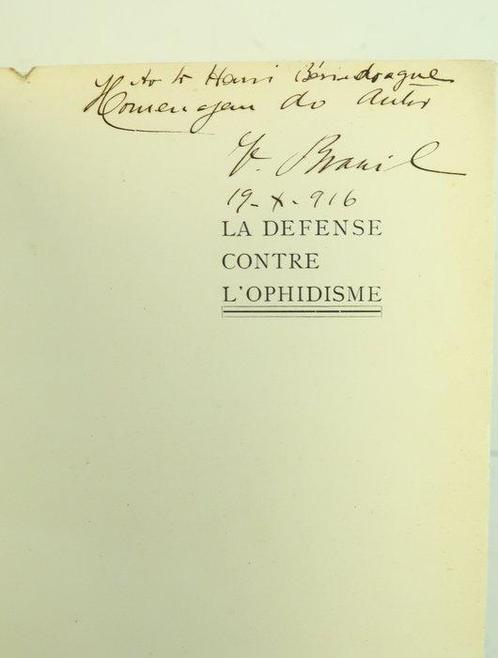 Ao Sr Henri
Homenagem do Autor
V. Brazil
19-X-916
LA DEFENSE
CONTRE
L'OPHIDISME